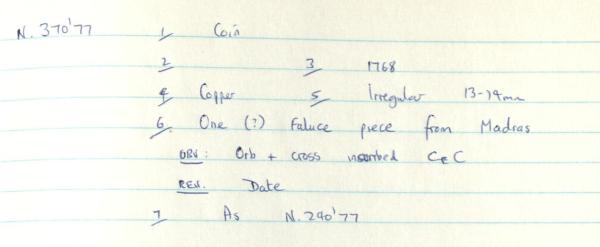 N. 370'77 1/ Coin
2/ 3/ 1768
4/ Copper 5/ Irregular 13-14mm
6/ One (?) Faluce piece from Madras
OBV: Orb + cross inscribed CEC
REV. Date
7/ As N. 240'77